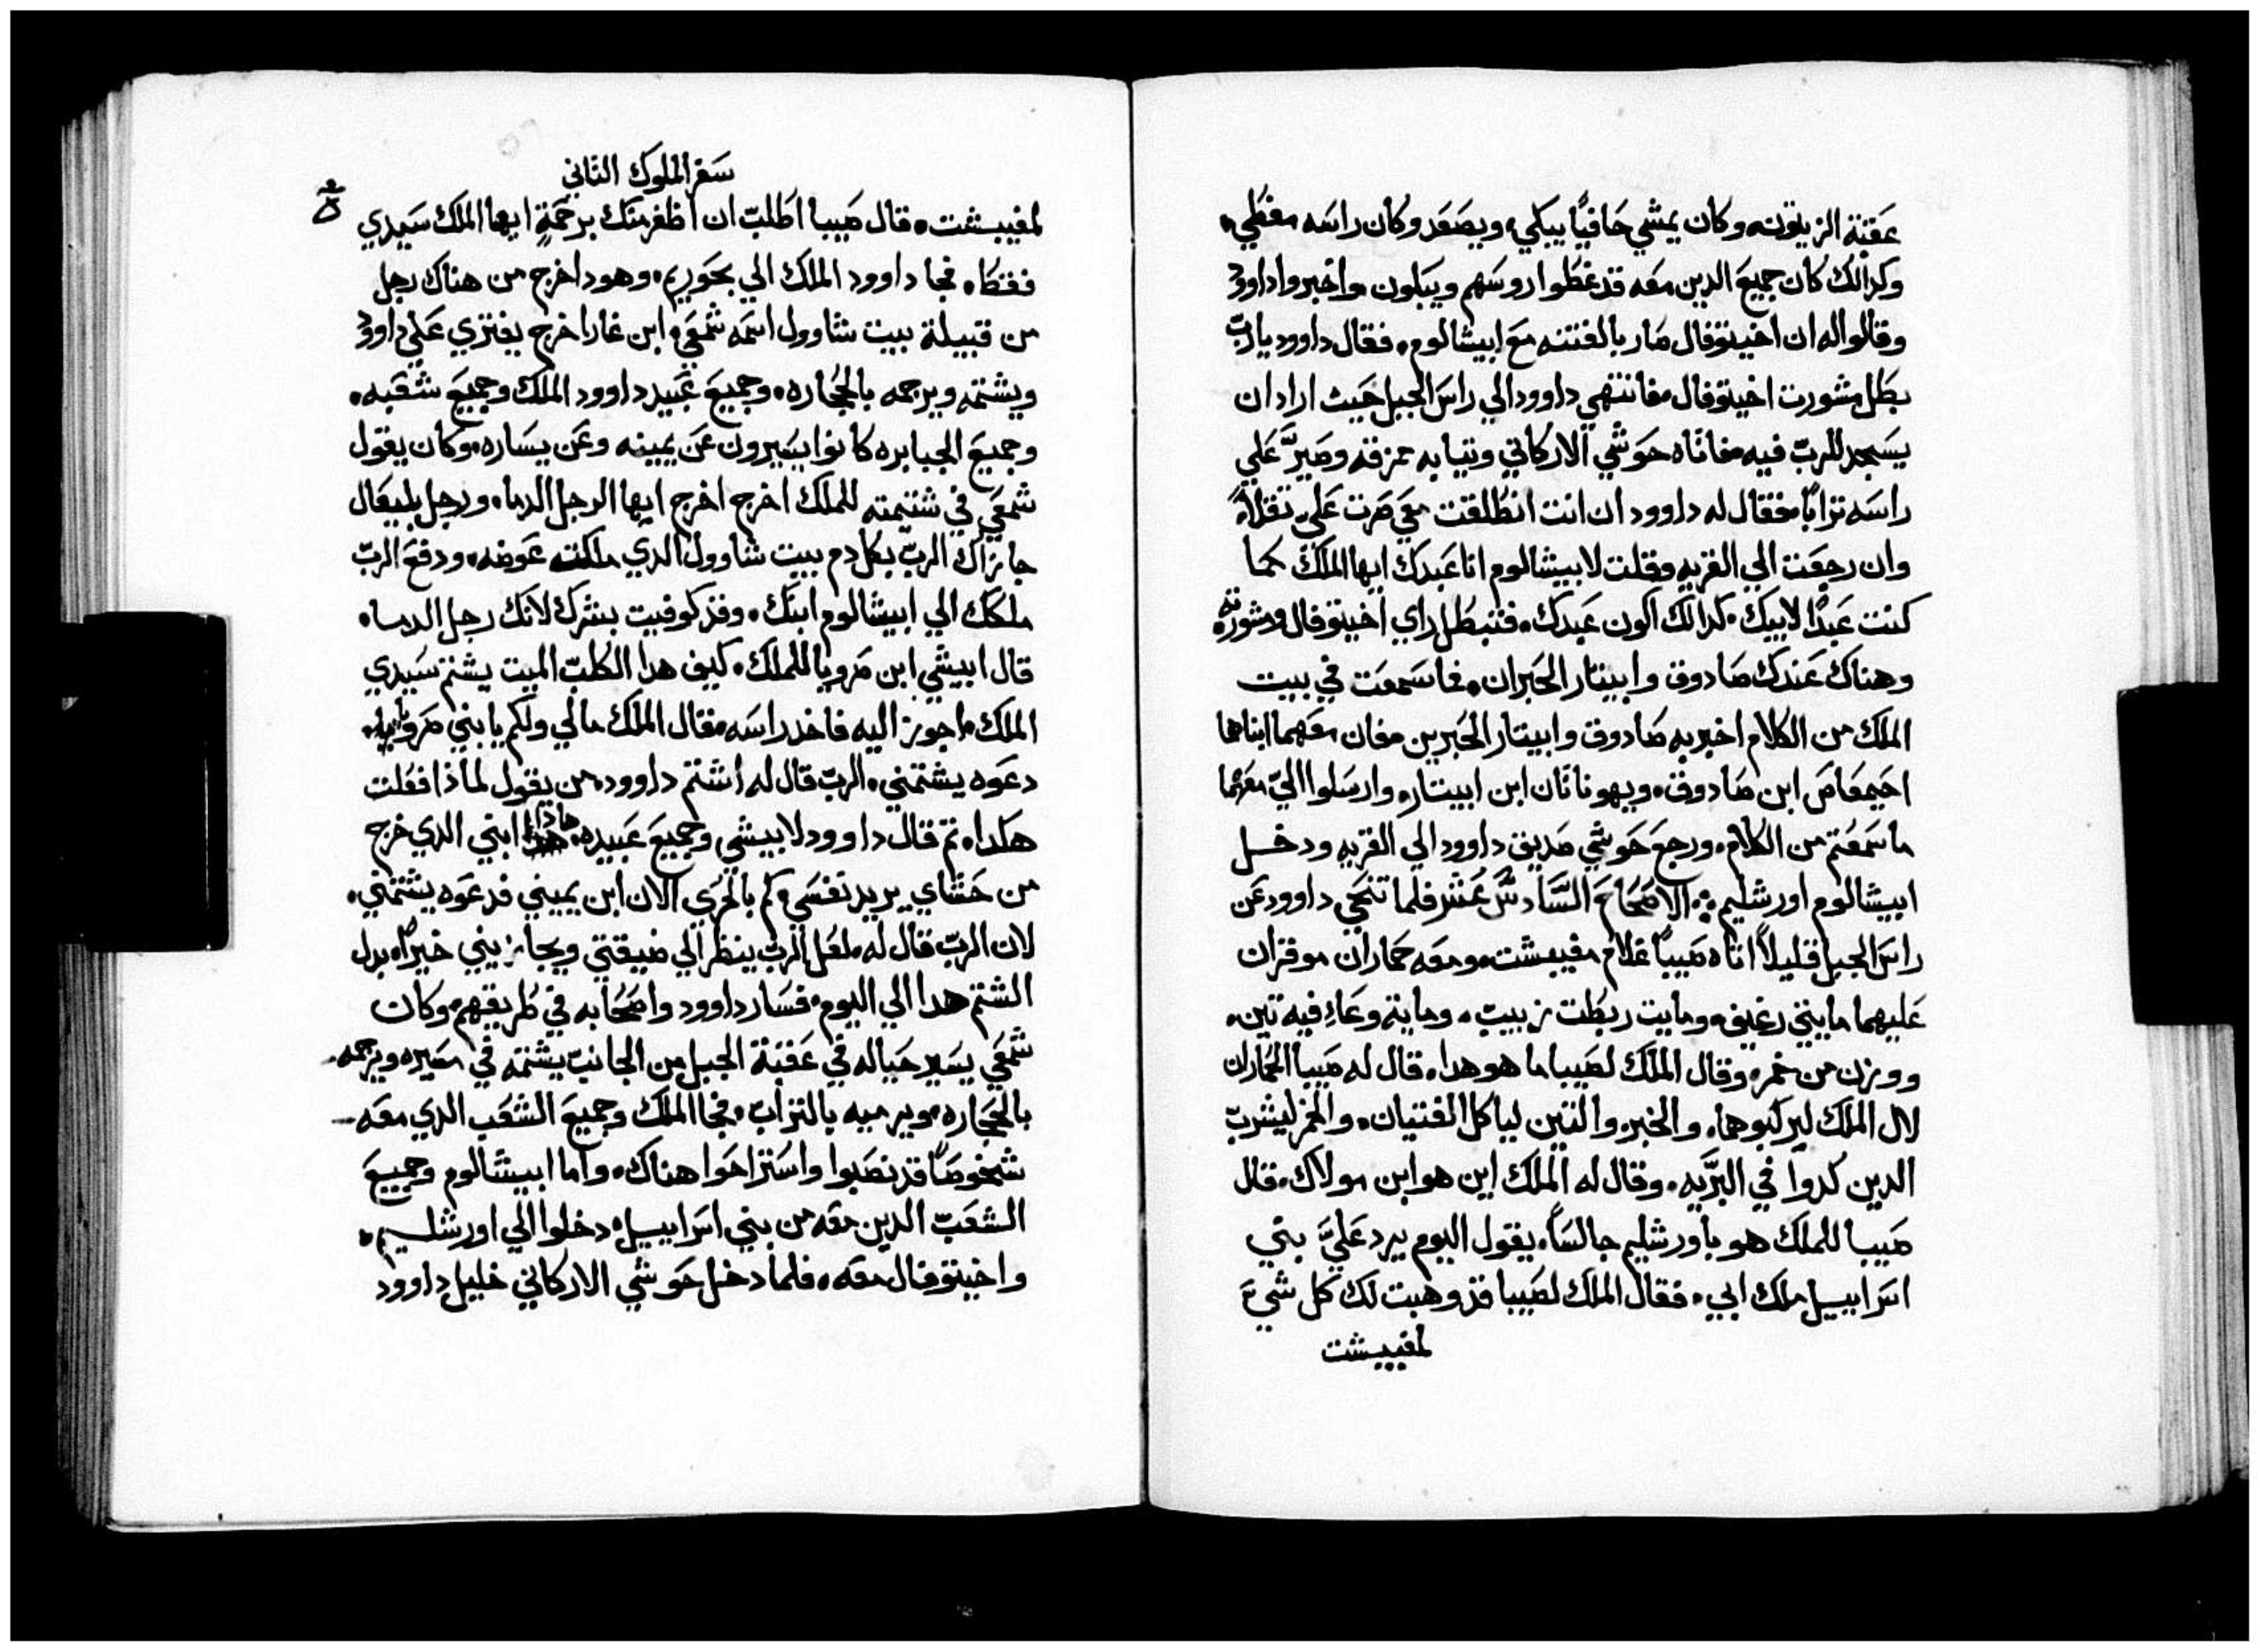 عَقبَة الزيتونه وكان يمشي حَافيًا يبكي، ويصَعَد وكان راسَه مغطي،
وكدالك كان جميعَ الدين معَه قد غطوا روسَهم ويبَلون، واخبروا داوود
وقالوا له ان اخيتوفال صَار بالفتنه معَ ابيشالوم، فقال داوود يا ربّ
بَطل مشورت اخيتوفال، فانتهي داوود الي راسَ الجبل حَيث اراد ان
يسَجد للربّ فيه، فاتاه حَوشي الاركاتي وتيابه ممزقه وصَيَّر عَلي
راسَه ترابًا، فقال له داوود ان انت انطلقت معَي صَرت عَليّ تقلاً،
وان رجعَت الي القريه وقلت لابيشالوم انا عَبدك ايها الملك كما
كنت عَبدًا لابيك، كدالك اكون عَبدك، فتبطل راي اخيتوفال ومشورته
وهناك عَندك صَادوق وابيتار الحَبران، فما سَمعَت في بيت
الملك من الكلام اخبر به صَادوق وابيتار الحَبرين، فان معَهما ابناهما
احَيمعَاصَ ابن صَادوق، ويهوناتان ابن ابيتار، وارسَلوا اليّ معَهما
ما سَمعَتم من الكلام، ورجعَ حَوشي صَديق داوود الي القريه ودخل
ابيشالوم اورشليم ؞ الاصَحَاحَ السَّادسَ عَشر فلما تنحَي داوود عَن
راسَ الجبل قليلاً اتاه صَيبا غلام مفيبشت، ومعَه حَماران موقران
عَليهما مايتي رغيف، ومايت ربطت زبيبّ، ومايته وعَاءِ فيه تين،
ووزن من خمر، وقال الملك لصَيبا ما هو هدا، قال له صَيبا الحَماران
لال الملك ليركبوهما، والخبز، والتين لياكل الفتيان، والخمر ليشربّ
الدين كدوا في البرَّيه، وقال له الملك اين هو ابن مولاك، قال
صَيبا للملك هو باورشليم جالسَاً، يقول اليوم يرد عَليَّ بني
اسَراييل ملك ابي، فقال الملك لصَيبا قد وهبت لك كل شيءَ
لمفيبشت
سَفر الملوك التاني
لمفيبشت، قال صَيبا اطلبّ ان اظفر منك برحَمةٍ ايها الملك سَيدي
فقط، فجا داوود الملك الي بحَوريم، وهودا خرج من هناك رجل
من قبيلة بيت شاوول اسَمه شمعَي، ابن غارا خرج يفتري عَلي داوود
ويشتمه ويرجمه بالحَجاره، وجميعَ عَبيد داوود الملك وجميعَ شعَبه،
وجميعَ الجبابره كانوا يسَيرون عَن يمينه وعَن يسَاره، وكان يقول
شمعَي في شتيمته للملك اخرج اخرج ايها الرجل الدما، ورجل بليعَال
جازاك الربّ بكل دم بيت شاوول الدي ملكت عَوضه، ودفعَ الربّ
ملكك الي ابيشالوم ابنك، وقد كوفيت بشرك لانك رجل الدما،
قال ابيشي ابن صَرويا للملك، كيف هدا الكلبّ الميت يشتم سَيدي
الملك، اجوز اليه فاخد راسَه، فقال الملك مالي ولكم يا بني صَرويا،
دعَوه يشتمني، الربّ قال له اشتم داوود، من يقول لماذا فعَلت
هكدا، تم قال داوود لابيشي وجميعَ عَبيده، هاذا ابني الدي خرج
من حَشاي يريد نفسَي، كم بالحَري الان ابن يميني فدعَوه يشتمني،
لان الربّ قال له، لعَل الربّ ينظر الي ضيقتي ويجازيني خيرًا، بدل
الشتم هدا الي اليوم، فسَار داوود واصَحَابه في طريقهم، وكان
شمعَي يسَير حَياله في عَقبَة الجبل من الجانبّ يشتمه في مسَيره ويرجمه
بالحَجاره، ويرميه بالترابّ، فجا الملك وجميعَ الشعَب الدي معَه
شخوصَاً قد نصَبوا واسَتراحَوا هناك، واما ابيشالوم وجميعَ
الشعَبّ الدين معَه من بني اسَراييل، دخلوا الي اورشليم،
واخيتوفال معَه، فلما دخل حَوشي الاركاتي خليل داوود